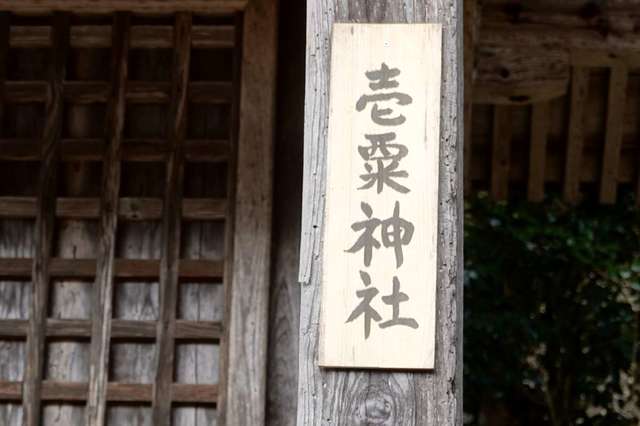 壱粟神社